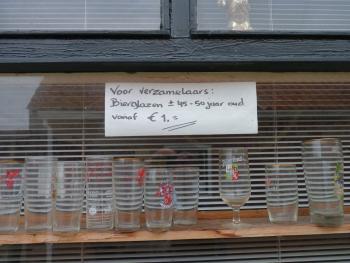 Voor verzamelaars:
Bierglazen ± 45-50 jaar oud
vanaf € 1.=